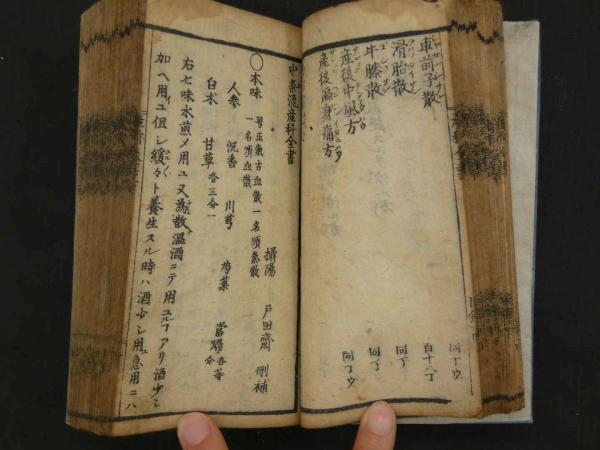 車前子散 同丁ウ
滑胎散 百十八丁
牛膝散 同丁
産後中風方 同丁
産後偏身痛方 同丁ウ
中条流産科全書
攝陽 戸田齋 刪補
〇本味 号正氣古血散一名順氣散
一名順血散
人参 沉香 川芎 當歸各等分
白朮 甘草各三分一
右七味水煎メ用ユ又為散温酒ニテ用ユルコアリ酒少シ
加ヘ用ユ但シ緩々ト養生スル時ハ酒少シ用ユ急用ニハ